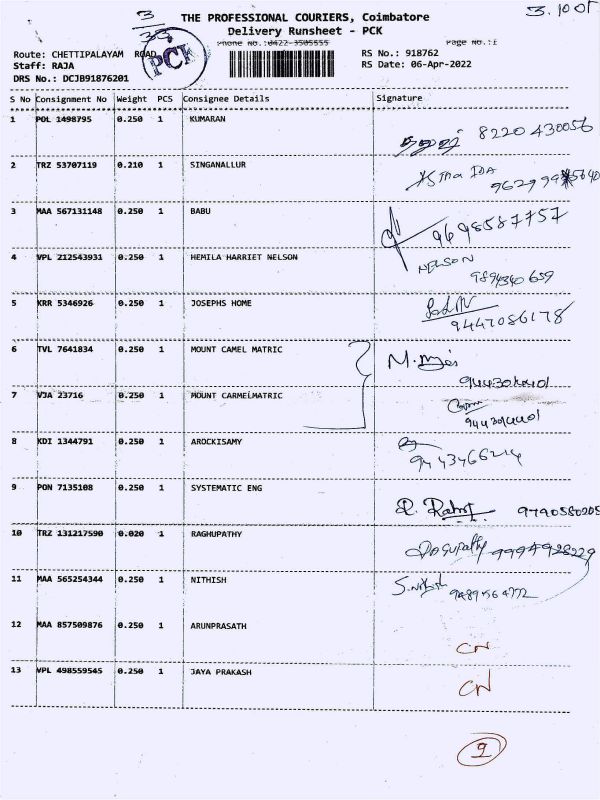 3/33
3.10 05
THE PROFESSIONAL COURIERS, Coimbatore
Delivery Runsheet - PCK
Phone No.:0422-3505555
Page No.:1
Route: CHETTIPALAYAM ROAD
Staff: RAJA
DRS No.: DCJB91876201
PCK
RS No.: 918762
RS Date: 06-Apr-2022
S No Consignment No Weight PCS Consignee Details Signature
1 POL 1498795 0.250 1 KUMARAN 8220430056
2 TRZ 53707119 0.210 1 SINGANALLUR
3 MAA 567131148 0.250 1 BABU 9698587757
4 VPL 212543931 0.250 1 HEMILA HARRIET NELSON NELSON
9894340659
5 KRR 5346926 0.250 1 JOSEPHS HOME
9447086178
6 TVL 7641834 0.250 1 MOUNT CAMEL MATRIC
7 VJA 23716 0.250 1 MOUNT CARMELMATRIC
8 KDI 1344791 0.250 1 AROCKISAMY
9443466214
9 PON 7135108 0.250 1 SYSTEMATIC ENG 9790580205
10 TRZ 131217590 0.020 1 RAGHUPATHY 9994928229
11 MAA 565254344 0.250 1 NITHISH S.Nithish 9489564772
12 MAA 857509876 0.250 1 ARUNPRASATH CN
13 VPL 498559545 0.250 1 JAYA PRAKASH CN
9